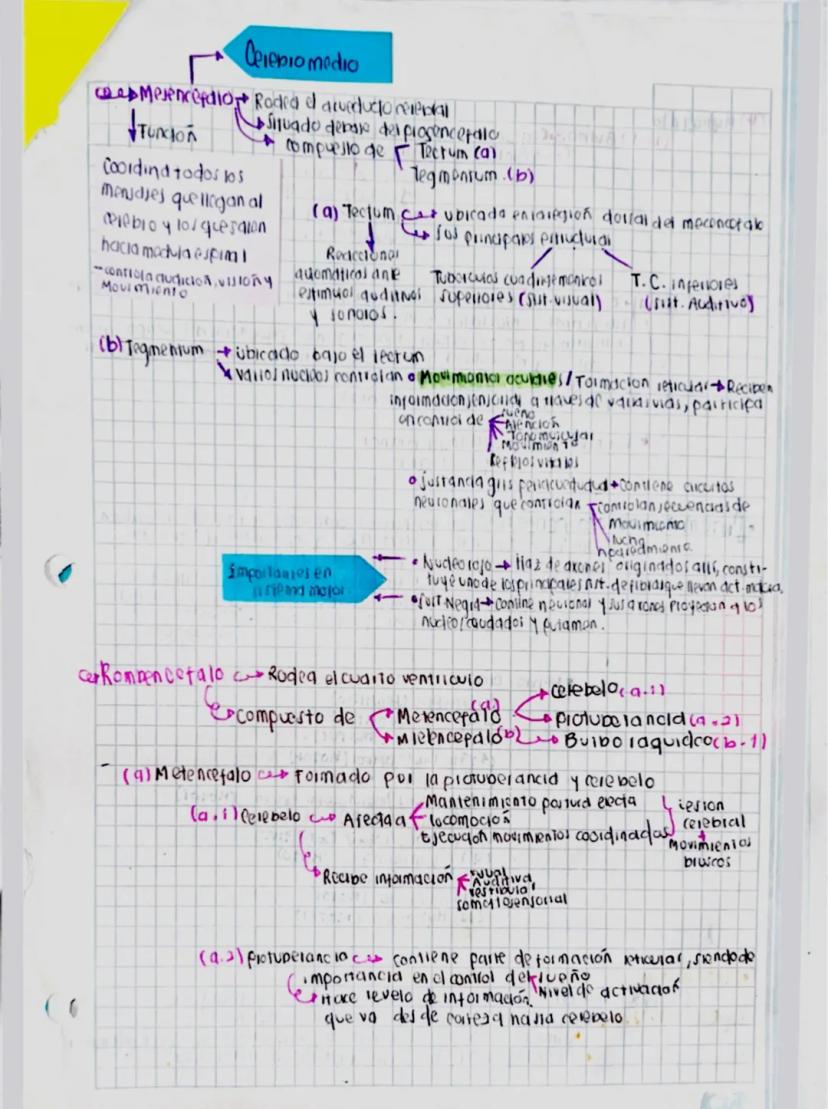 Cerebro medio
Mesencefalo → Rodea el acueducto cerebral
Situado debase del prosencefalo
compuesto de Tectum (a)
Tegmentum (b)
Función
Coordina todos los
mensajes que llegan al
cerebro y los que salen
hacia medula espinal
- controla audicion, visión y
Movimiento
(a) Tectum → ubicada en la región dorsal del mecencefalo
sus principales estructuras
Reacciones
automáticas ante
estimulos auditivos
y sonoros.
Tuberculos cuadrigemonicos
superiores (sist. visual)
T.C. inferiores
(sist. Auditivo)
(b) Tegmentum → ubicado bajo el tectum
Varios nucleos controlan o Movimientos oculares / Formacion reticular → Reciben
informacion sensorial a traves de varias vias, participa
en control de sueño
Atención
Tono muscular
Movimiento
Reflejos vitales
o sustancia gris periacueductual → Contiene circuitos
neuronales que controlan controlan secuencias de
Movimiento
lucha
Apareamiento
Importantes en
sistema motor
• Nucleo rojo → Haz de axones originados alli, consti-
tuye uno de los principales sist. de fibras que llevan act. motora.
• Sust. Negra → contiene neuronas y sus axones proyectan a los
nucleos caudados y putamen.
Rombencefalo → Rodea el cuarto ventriculo
compuesto de Metencefalo (a) cerebelo (a.1)
protuberancia (a.2)
Mielencefalo (b) → Bulbo raquideo (b.1)
(a) Metencefalo → Formado por la protuberancia y cerebelo
(a.1) Cerebelo → Afecta a Mantenimiento postura erecta
locomoción
Ejecucion movimientos coordinados
lesion
cerebral
↓
Movimientos
bruscos
Recibe informacion visual
Auditiva
vestibular
somatosensorial
(a.2) protuberancia → contiene parte de formación reticular, siendo de
importancia en el control del sueño
Nivel de activación
Hace revelo de información
que va desde corteza hasta cerebelo